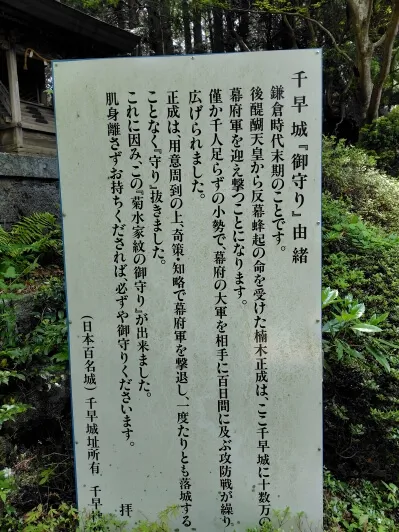 千早城『御守り』由緒
鎌倉時代末期のことです。
後醍醐天皇から反幕蜂起の命を受けた楠木正成は、ここ千早城に十数万の
幕府軍を迎え撃つことになります。
僅か千人足らずの小勢で、幕府の大軍を相手に百日間に及ぶ攻防戦が繰り
広げられました。
正成は、用意周到の上、奇策・知略で幕府軍を撃退し、一度たりとも落城する
ことなく『守り』抜きました。
これに因み、この『菊水家紋の御守り』が出来ました。
肌身離さずお持ちくだされば、必ずや御守りくださいます。
拝
(日本百名城) 千早城址所有 千早